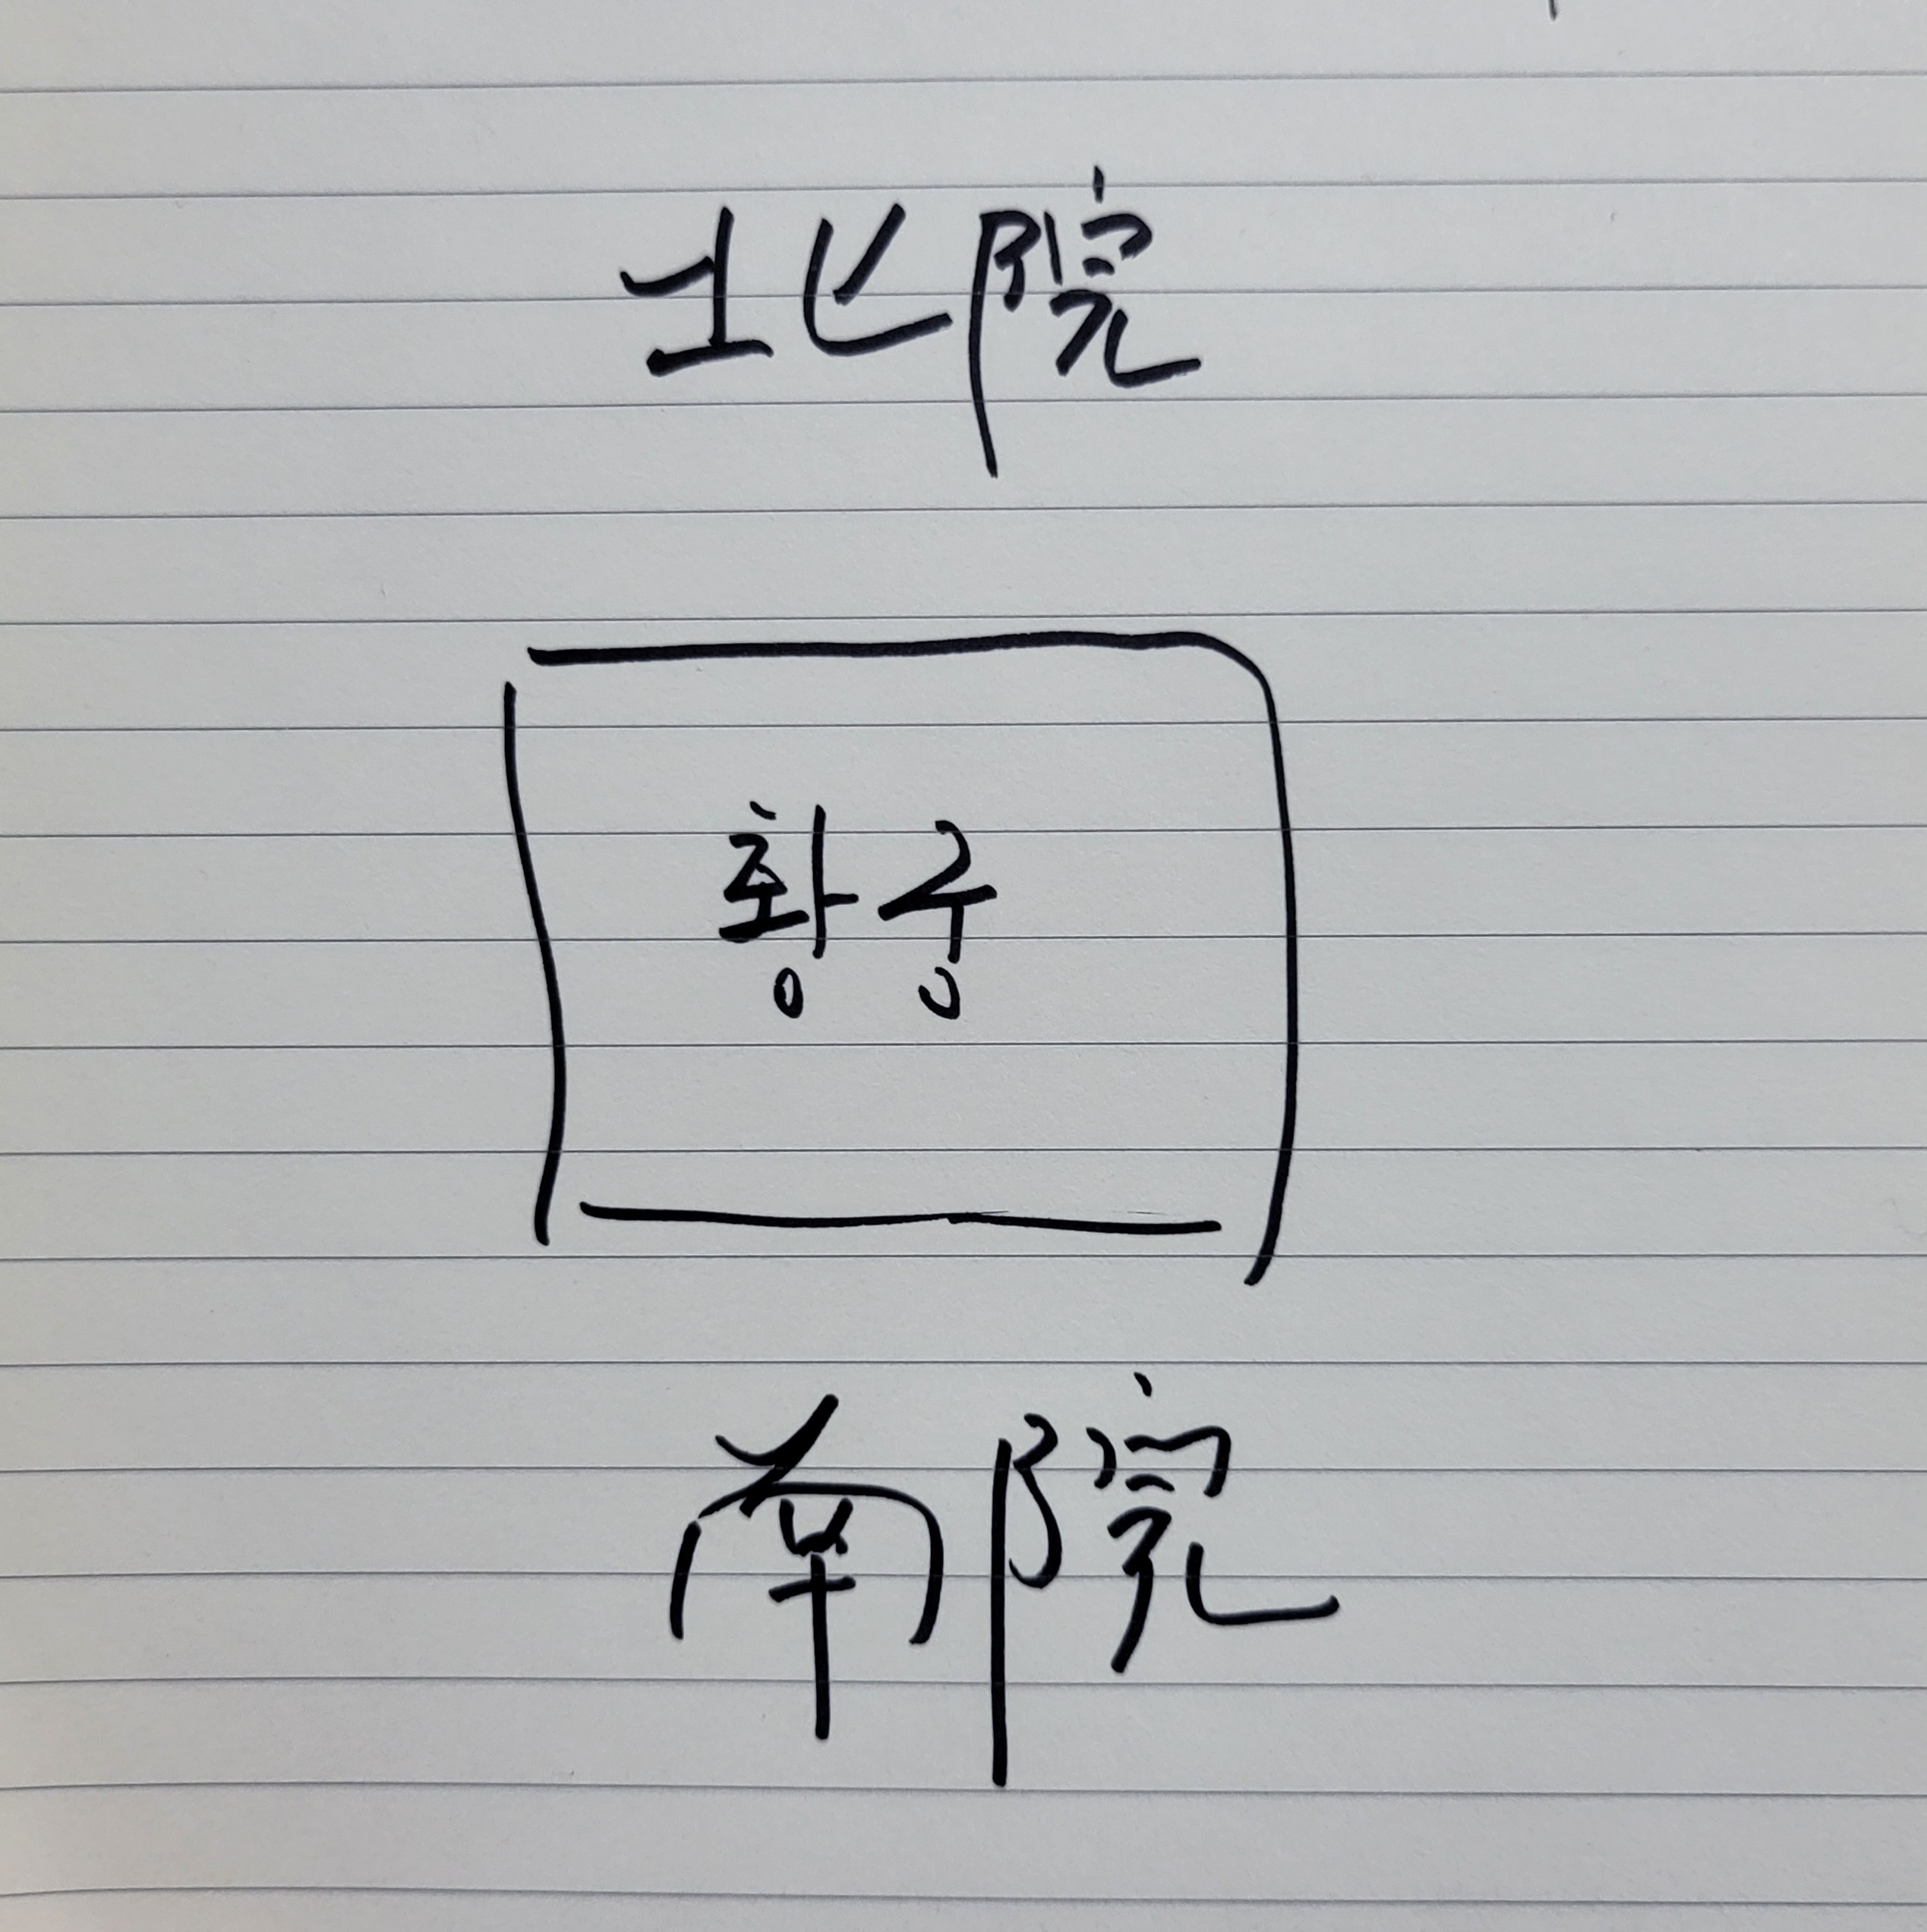 北院
황궁
南院